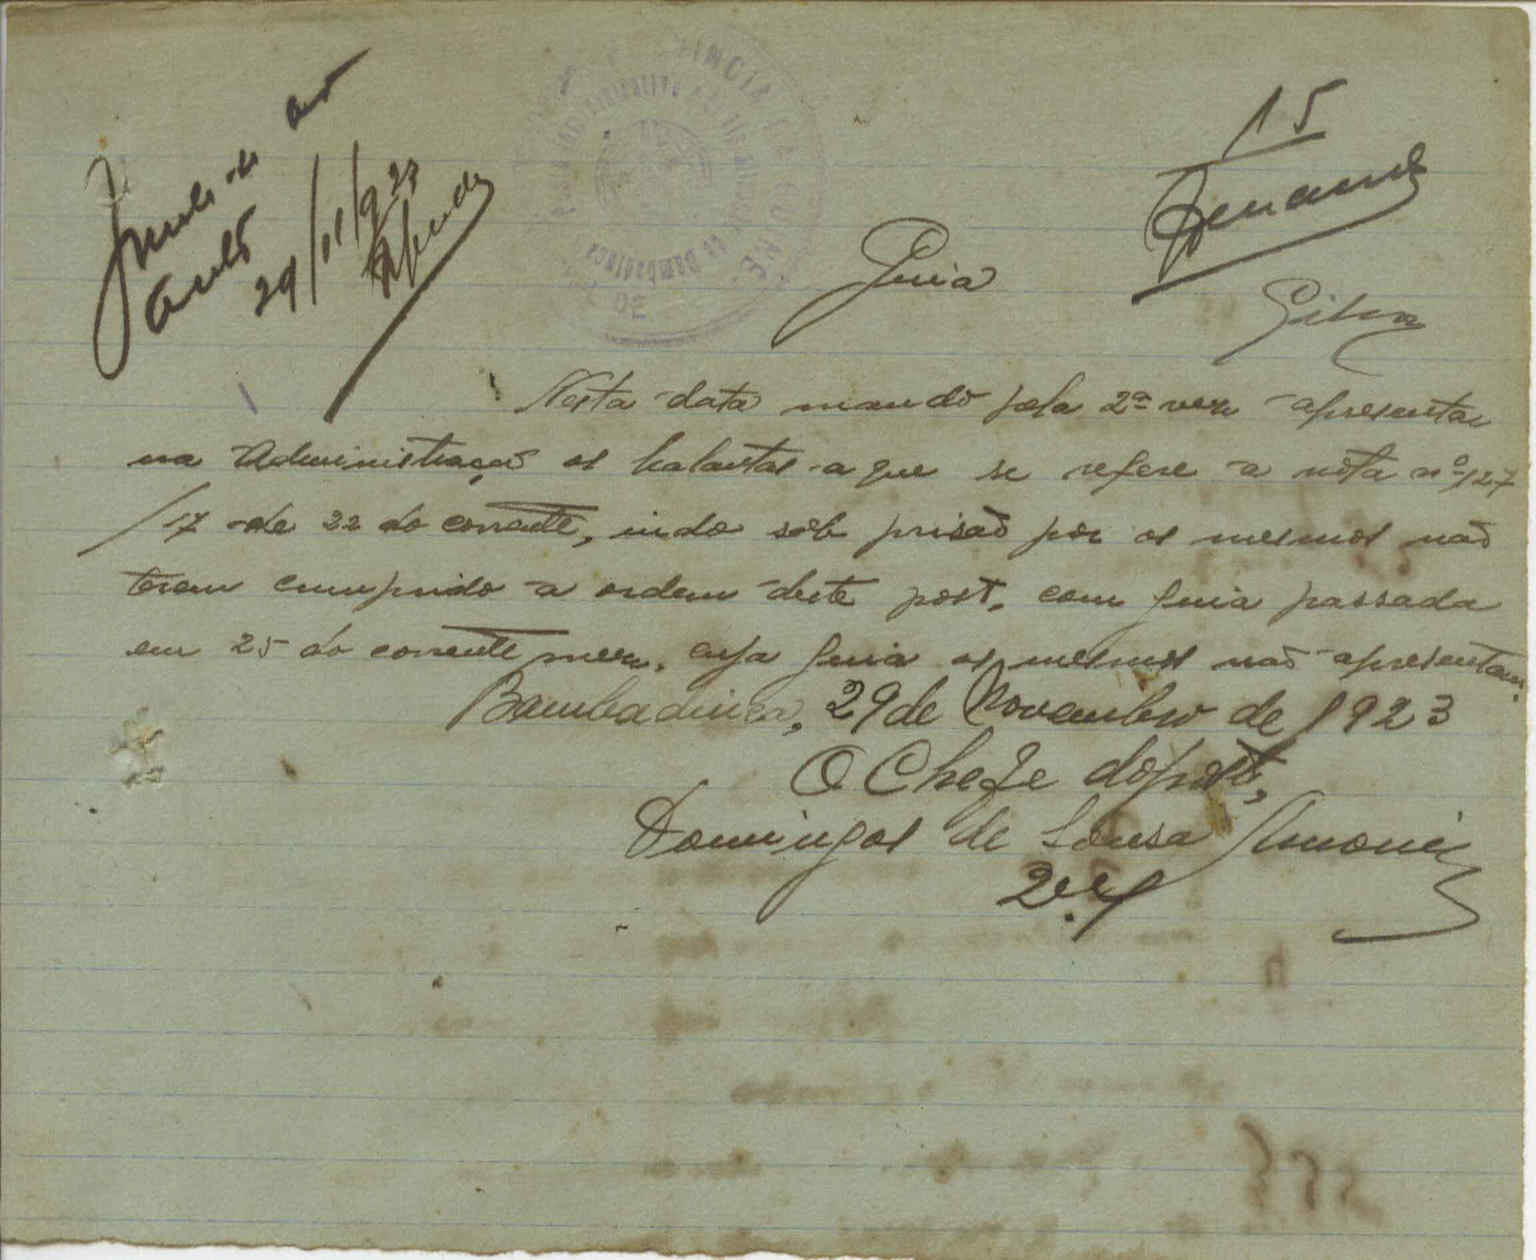 Junte-se aos
autos
29/11/923
15
Guia
Nesta data mando pela 2ª vez apresentar
na Administração os balantas a que se refere a nota nº 127
/17 de 22 do corrente, indo sob prisão por os mesmos não
terem cumprido a ordem deste post. com guia passada
em 25 do corrente mez, cuja guia os mesmos não apresentam.
Bambadinca, 29 de Novembro de 1923
O Chefe do posto,
Domingos de Sousa